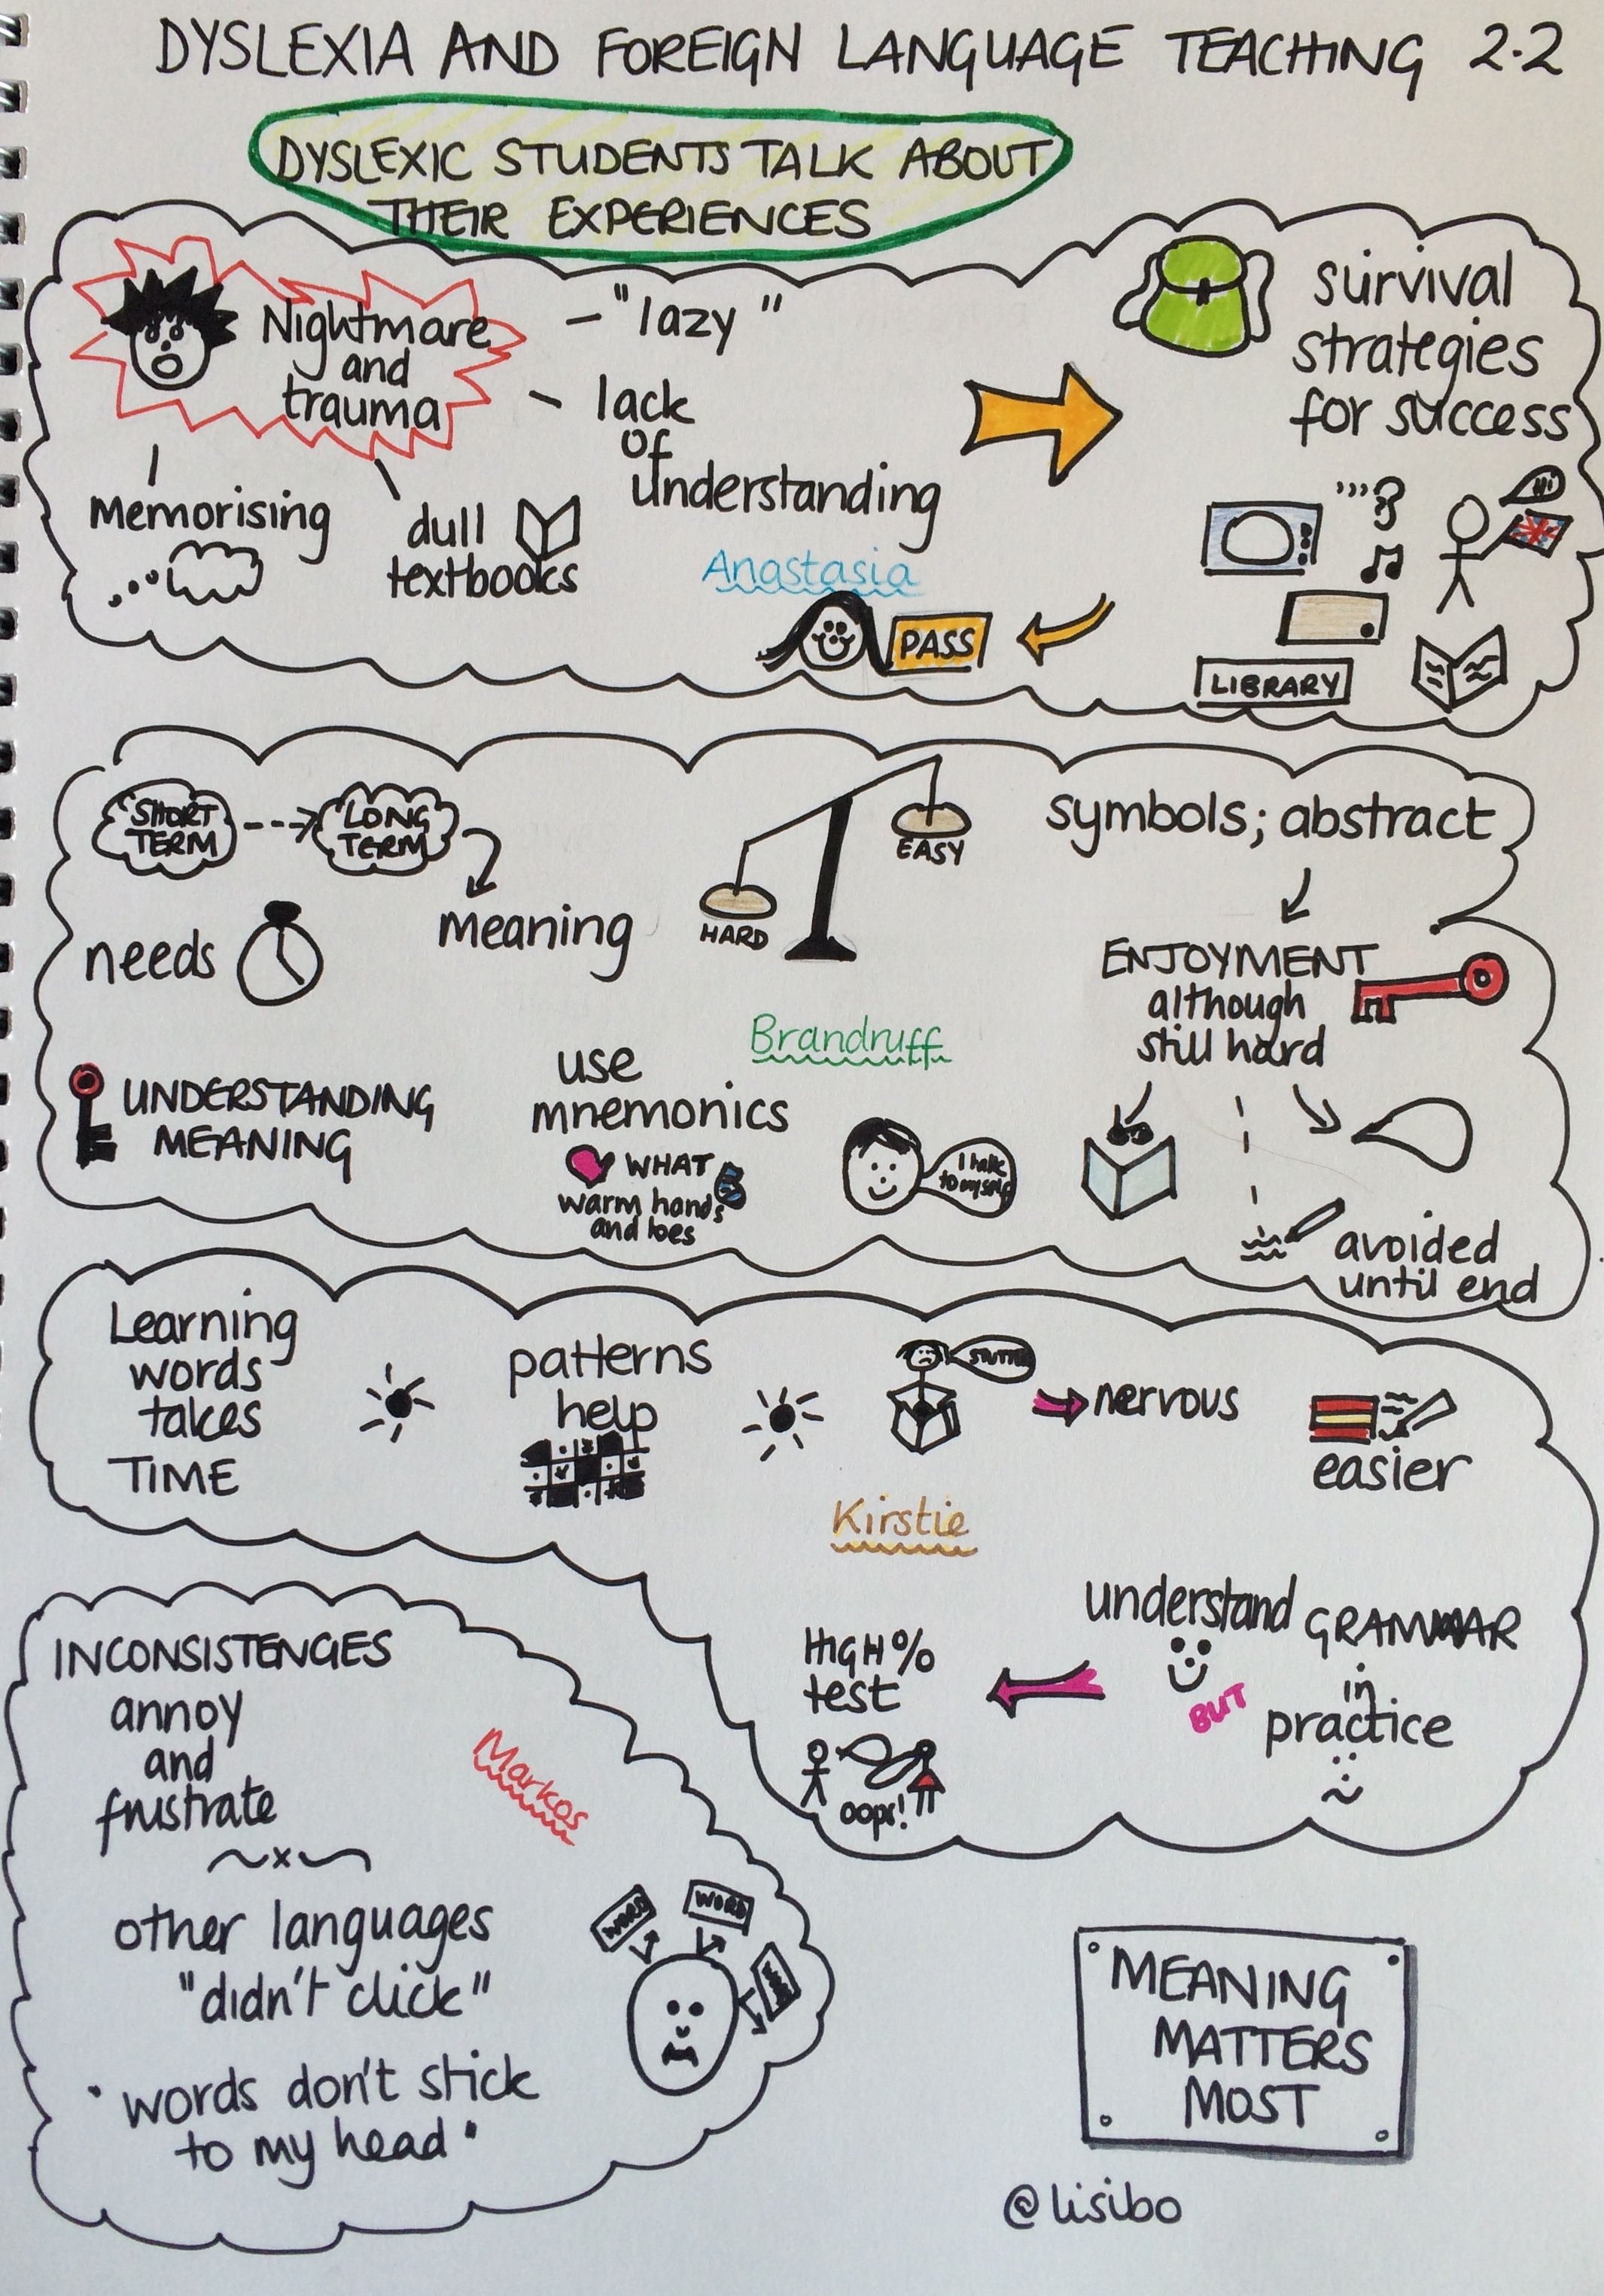 DYSLEXIA AND FOREIGN LANGUAGE TEACHING 2.2
DYSLEXIC STUDENTS TALK ABOUT
THEIR EXPERIENCES
Nightmare
and
trauma
- "lazy"
- lack
of
understanding
memorising
dull
textbooks
survival
strategies
for success
Hi
LIBRARY
Anastasia
PASS
SHORT
TERM
LONG
TERM
meaning
needs
HARD
EASY
symbols; abstract
ENJOYMENT
although
still hard
UNDERSTANDING
MEANING
use
mnemonics
WHAT
warm hands
and toes
Brandruff
I talk
to myself
avoided
until end
Learning
words
takes
TIME
patterns
help
nervous
easier
Kirstie
understand GRAMMAR
BUT
in
practice
HIGH %
test
oops!
INCONSISTENCIES
annoy
and
frustrate
Markos
other languages
"didn't click"
'words don't stick
to my head'
WORD
WORD
WORD
MEANING
MATTERS
MOST
@lisibo